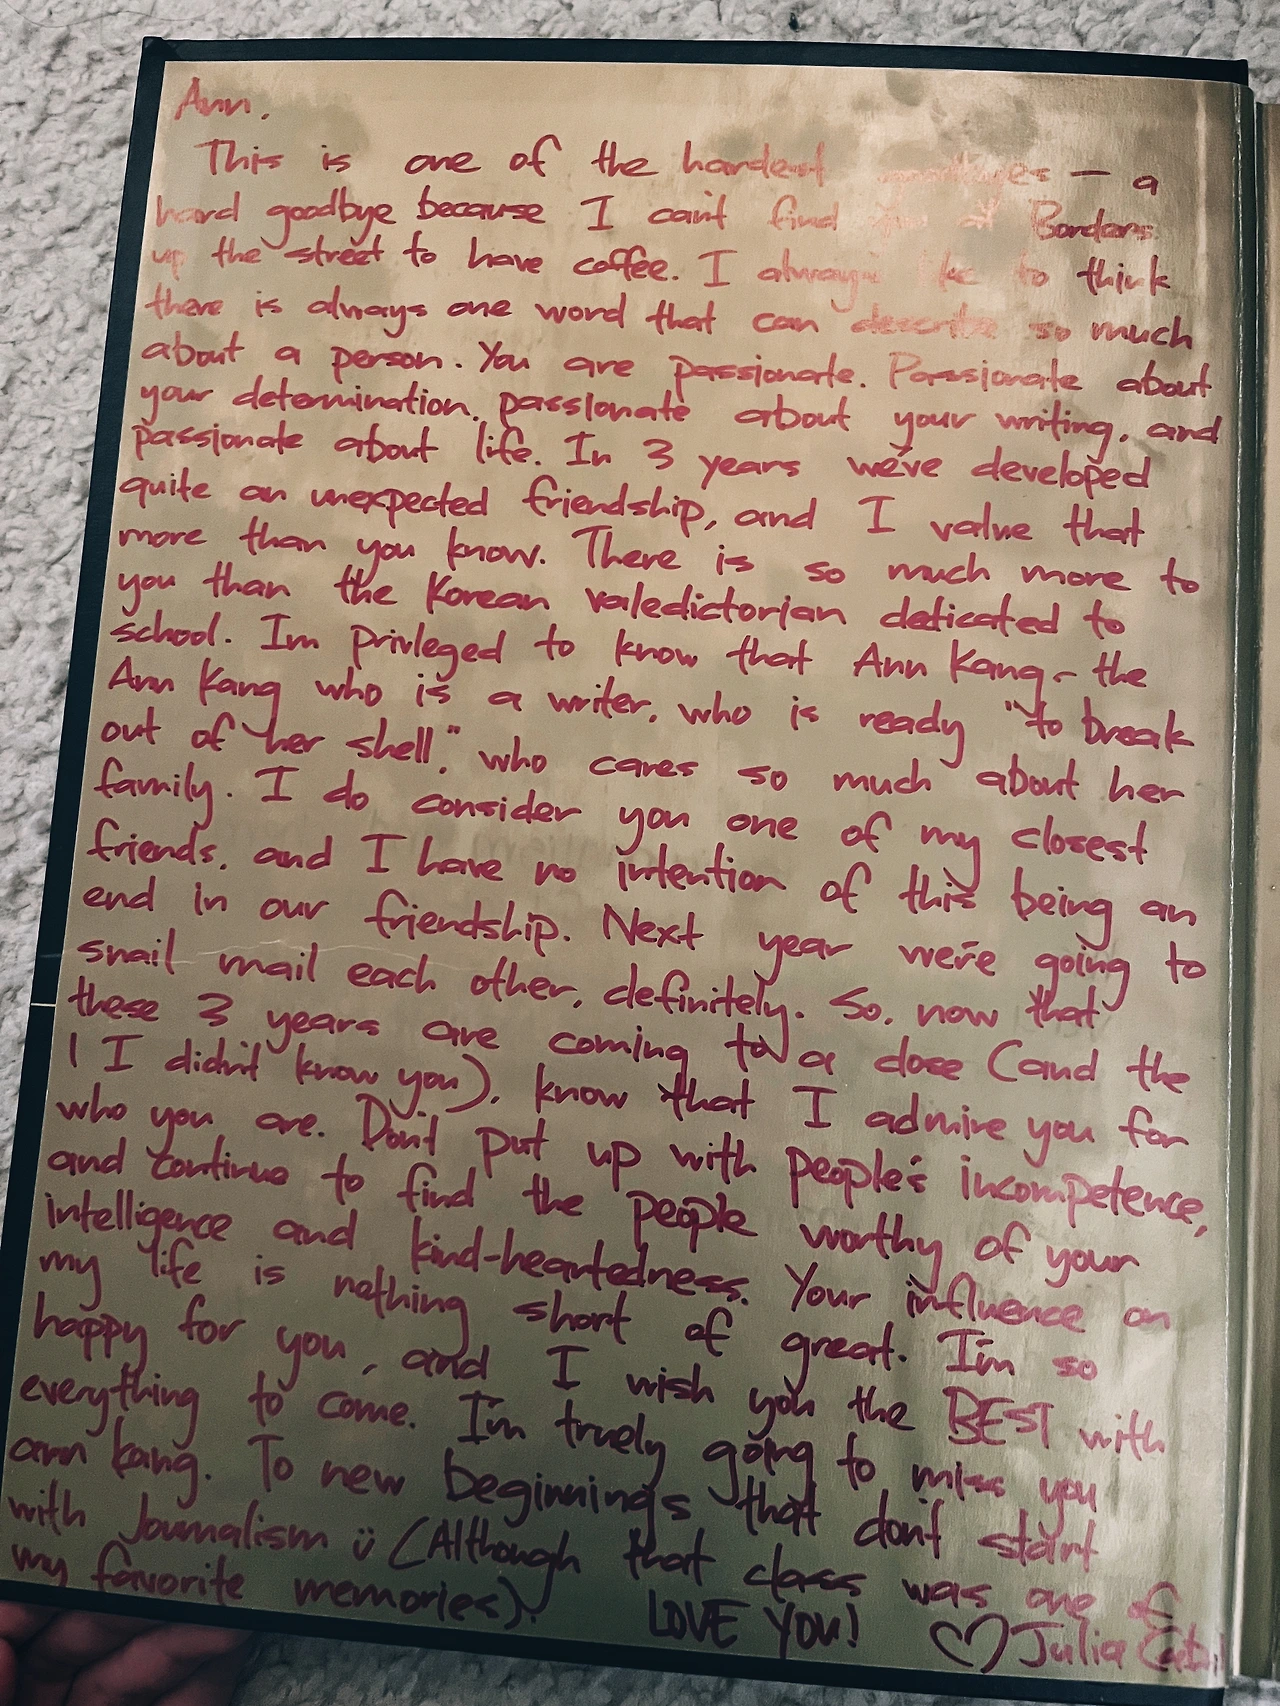 Ann,
This is one of the hardest goodbyes — a
hard goodbye because I can't find Borders
up the street to have coffee. I always like to think
there is always one word that can describe so much
about a person. You are passionate. Passionate about
your determination, passionate about your writing, and
passionate about life. In 3 years we've developed
quite an unexpected friendship, and I value that
more than you know. There is so much more to
you than the Korean valedictorian dedicated to
school. I'm privleged to know that Ann Kang - the
Ann Kang who is a writer, who is ready "to break
out of her shell", who cares so much about her
family. I do consider you one of my closest
friends, and I have no intention of this being an
end in our friendship. Next year we're going to
snail mail each other, definitely. So, now that
these 3 years are coming to a close (and the
1 I didn't know you), know that I admire you for
who you are. Don't put up with people's incompetence,
and continue to find the people worthy of your
intelligence and kind-heartedness. Your influence on
my life is nothing short of great. I'm so
happy for you, and I wish you the BEST with
everything to come. I'm truely going to miss you
ann kang. To new beginnings that don't start
with Journalism ü (Although that class was one of
my favorite memories). LOVE YOU! ♡ Julia